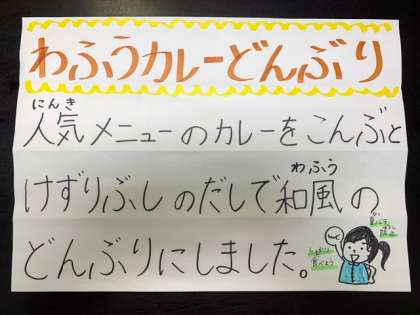 わふうカレーどんぶり
にんき
人気メニューのカレーをこんぶと
わふう
けずりぶしのだしで和風の
どんぶりにしました。